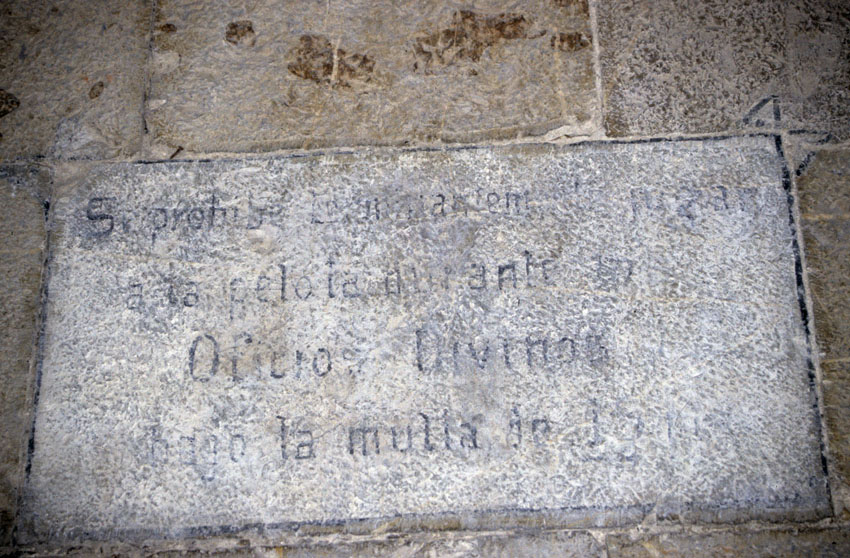 Se prohibe terminantemente jugar
a la pelota durante los
Oficios Divinos
bajo la multa de